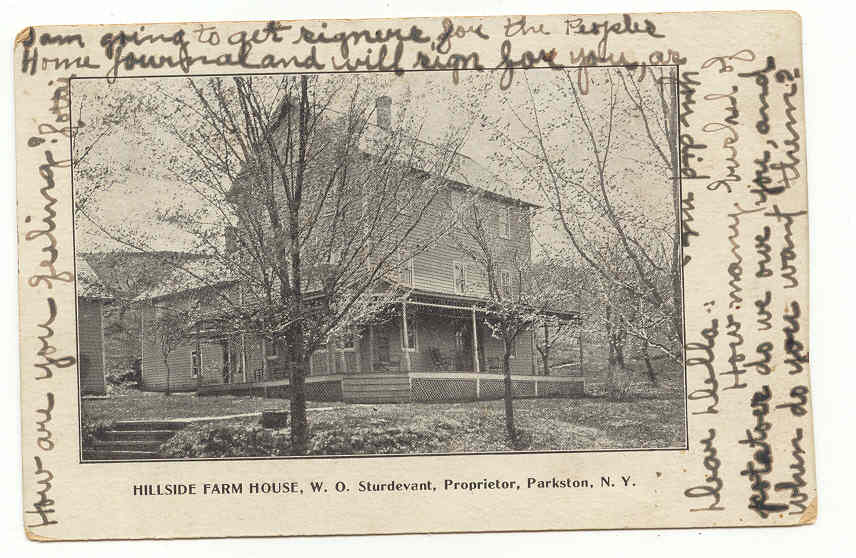 Dear Della:
How many bushel of
potatoes do we owe you, and
when do you want them?
I am going to get signers for the Peoples
Home Journal and will sign for you, as
you did me.
How are you feeling?
HILLSIDE FARM HOUSE, W. O. Sturdevant, Proprietor, Parkston, N. Y.